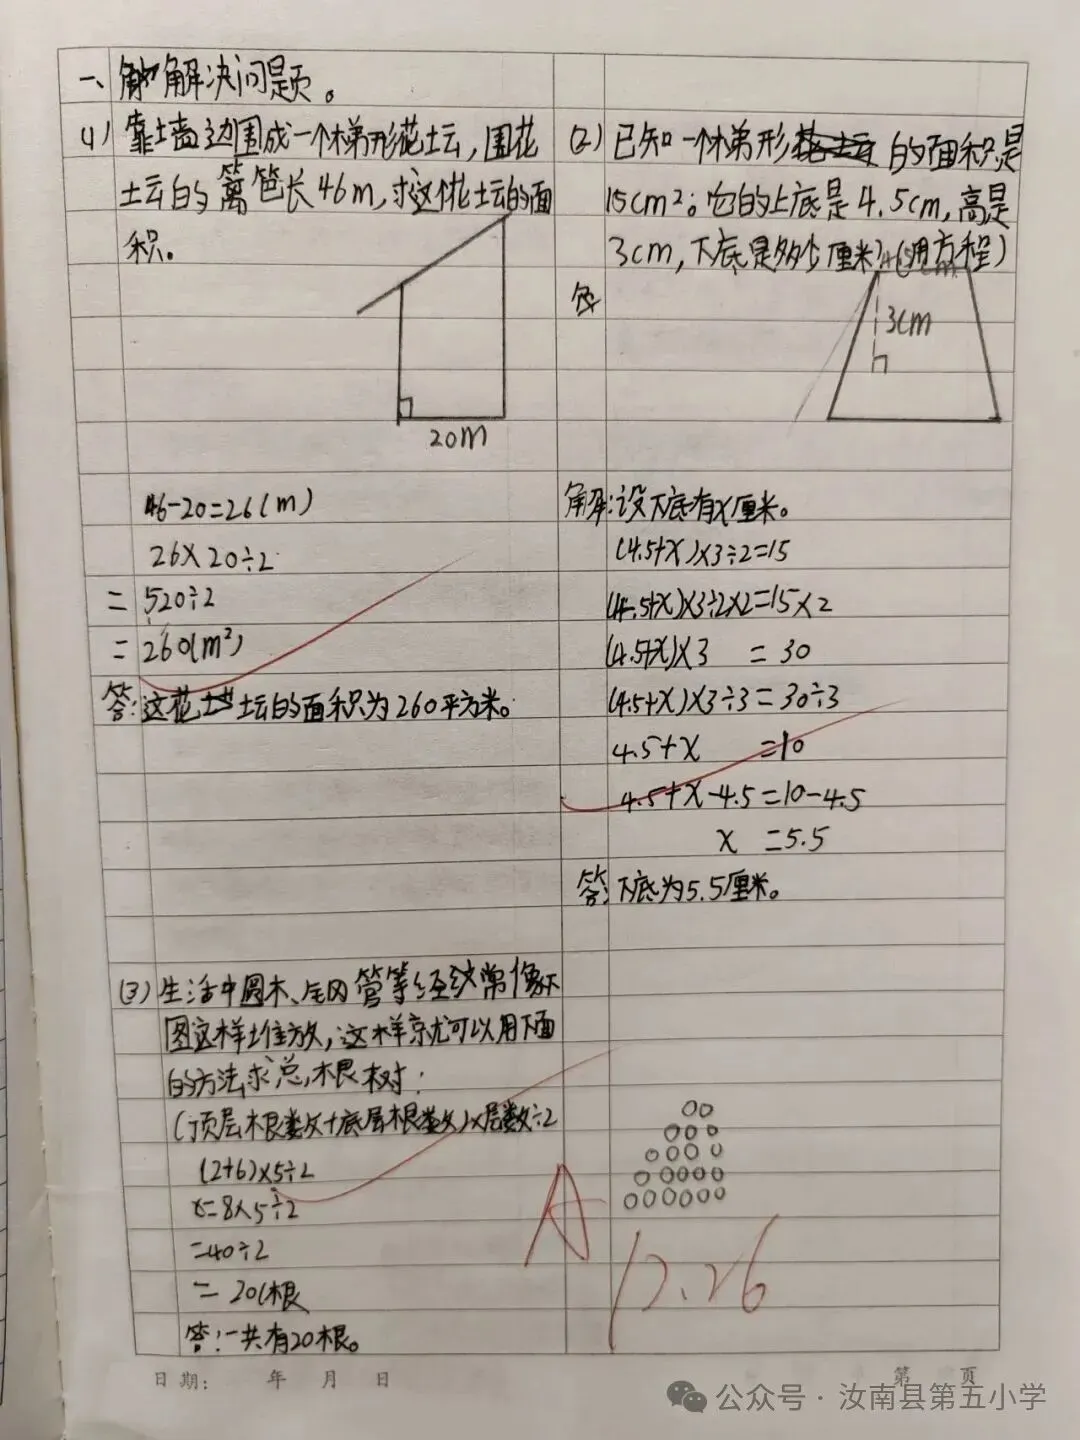 一、解决问题。
(1) 靠墙边围成一个梯形花坛,围花
坛的篱笆长46m,求这个花坛的面
积。
20m
46-20=26(m)
26×20÷2
=520÷2
=260(m²)
答:这花坛的面积为260平方米。
(2) 已知一个梯形的面积是
15cm²。它的上底是4.5cm,高是
3cm,下底是多少厘米?(用方程)
3cm
解:设下底有x厘米。
(4.5+x)×3÷2=15
(4.5+x)×3÷2×2=15×2
(4.5+x)×3 =30
(4.5+x)×3÷3=30÷3
4.5+x =10
4.5+x-4.5=10-4.5
x =5.5
答:下底为5.5厘米。
(3) 生活中圆木、钢管等经常像下
图这样堆放,这样就可以用下面
的方法求总根树:
(顶层根数+底层根数)×层数÷2
(2+6)×5÷2
=8×5÷2
=40÷2
=20(根
答:一共有20根。
A
12.26
日期: 年 月 日
第 页
公众号·汝南县第五小学